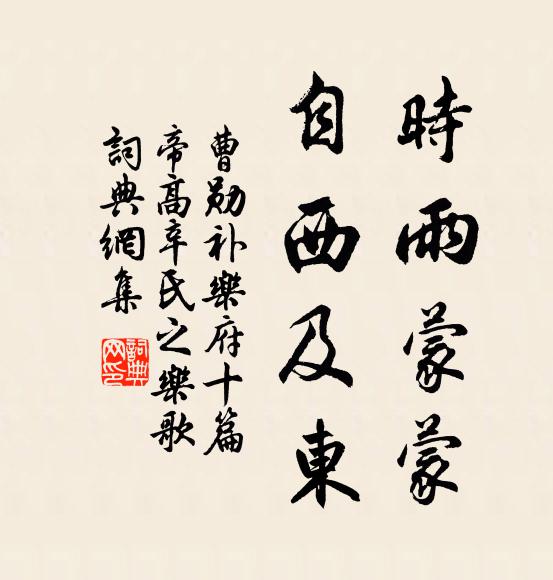 時雨蒙蒙
自西及東
曹勛补樂府十篇
帝高辛氏之樂歌
詞典網集
詞典
网印